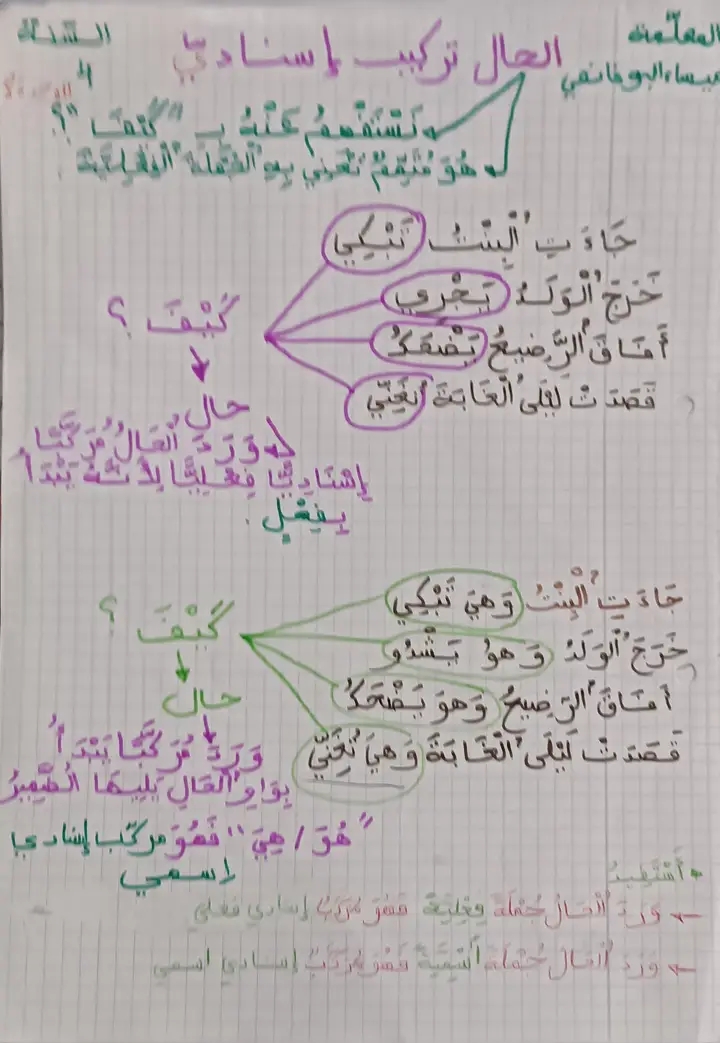 المعلّمة
ميساء البوهاني
الحال تركيب إسناديّ
السّنة
4
نَسْتَفْهِمُ عَنْهُ بِـ "كَيْفَ"؟
هُوَ مُتَمِّمٌ نَعْنِي بِهِ الْجُمْلَةَ الْفِعْلِيَّةَ
جَاءَتِ الْبِنْتُ تَبْكِي
خَرَجَ الْوَلَدُ يَجْرِي
أَفَاقَ الرَّضِيعُ يَضْحَكُ
قَصَدَتْ لَيْلَى الْغَابَةَ تُغَنِّي
كَيْفَ ؟
حال
وَرَدَ الْحَالُ مُرَكَّبًا
إِسْنَادِيًّا فِعْلِيًّا لِأَنَّهُ يَبْتَدَأُ
بِفِعْلٍ.
جَاءَتِ الْبِنْتُ وَهِيَ تَبْكِي
خَرَجَ الْوَلَدُ وَهوُ يَشْدُو
أفَاقَ الرَّضِيعُ وَهوَ يَضْحَكُ
قَصَدَتْ لَيْلَى الْغَابَةَ وَهِيَ تُغَنِّي
كَيْفَ ؟
حال
وَرَدَ مُرَكَّبًا يَبْتَدَأُ
بِوَاوِ الْحَالِ يَلِيهَا الضَّمِيرُ
"هُوَ / هِيَ" فَهُوَ مركّب إسنادي
اسمي
أَسْتَفِيدُ
وَرَدَ الْحَالُ جُمْلَةً فِعْلِيَّةً فَهُوَ مُرَكَّبٌ إسنادي فعلي
وَرَدَ الْحَالُ جُمْلَةً اسْمِيَّةً فَهُوَ مُرَكَّبٌ إسنادي اسمي